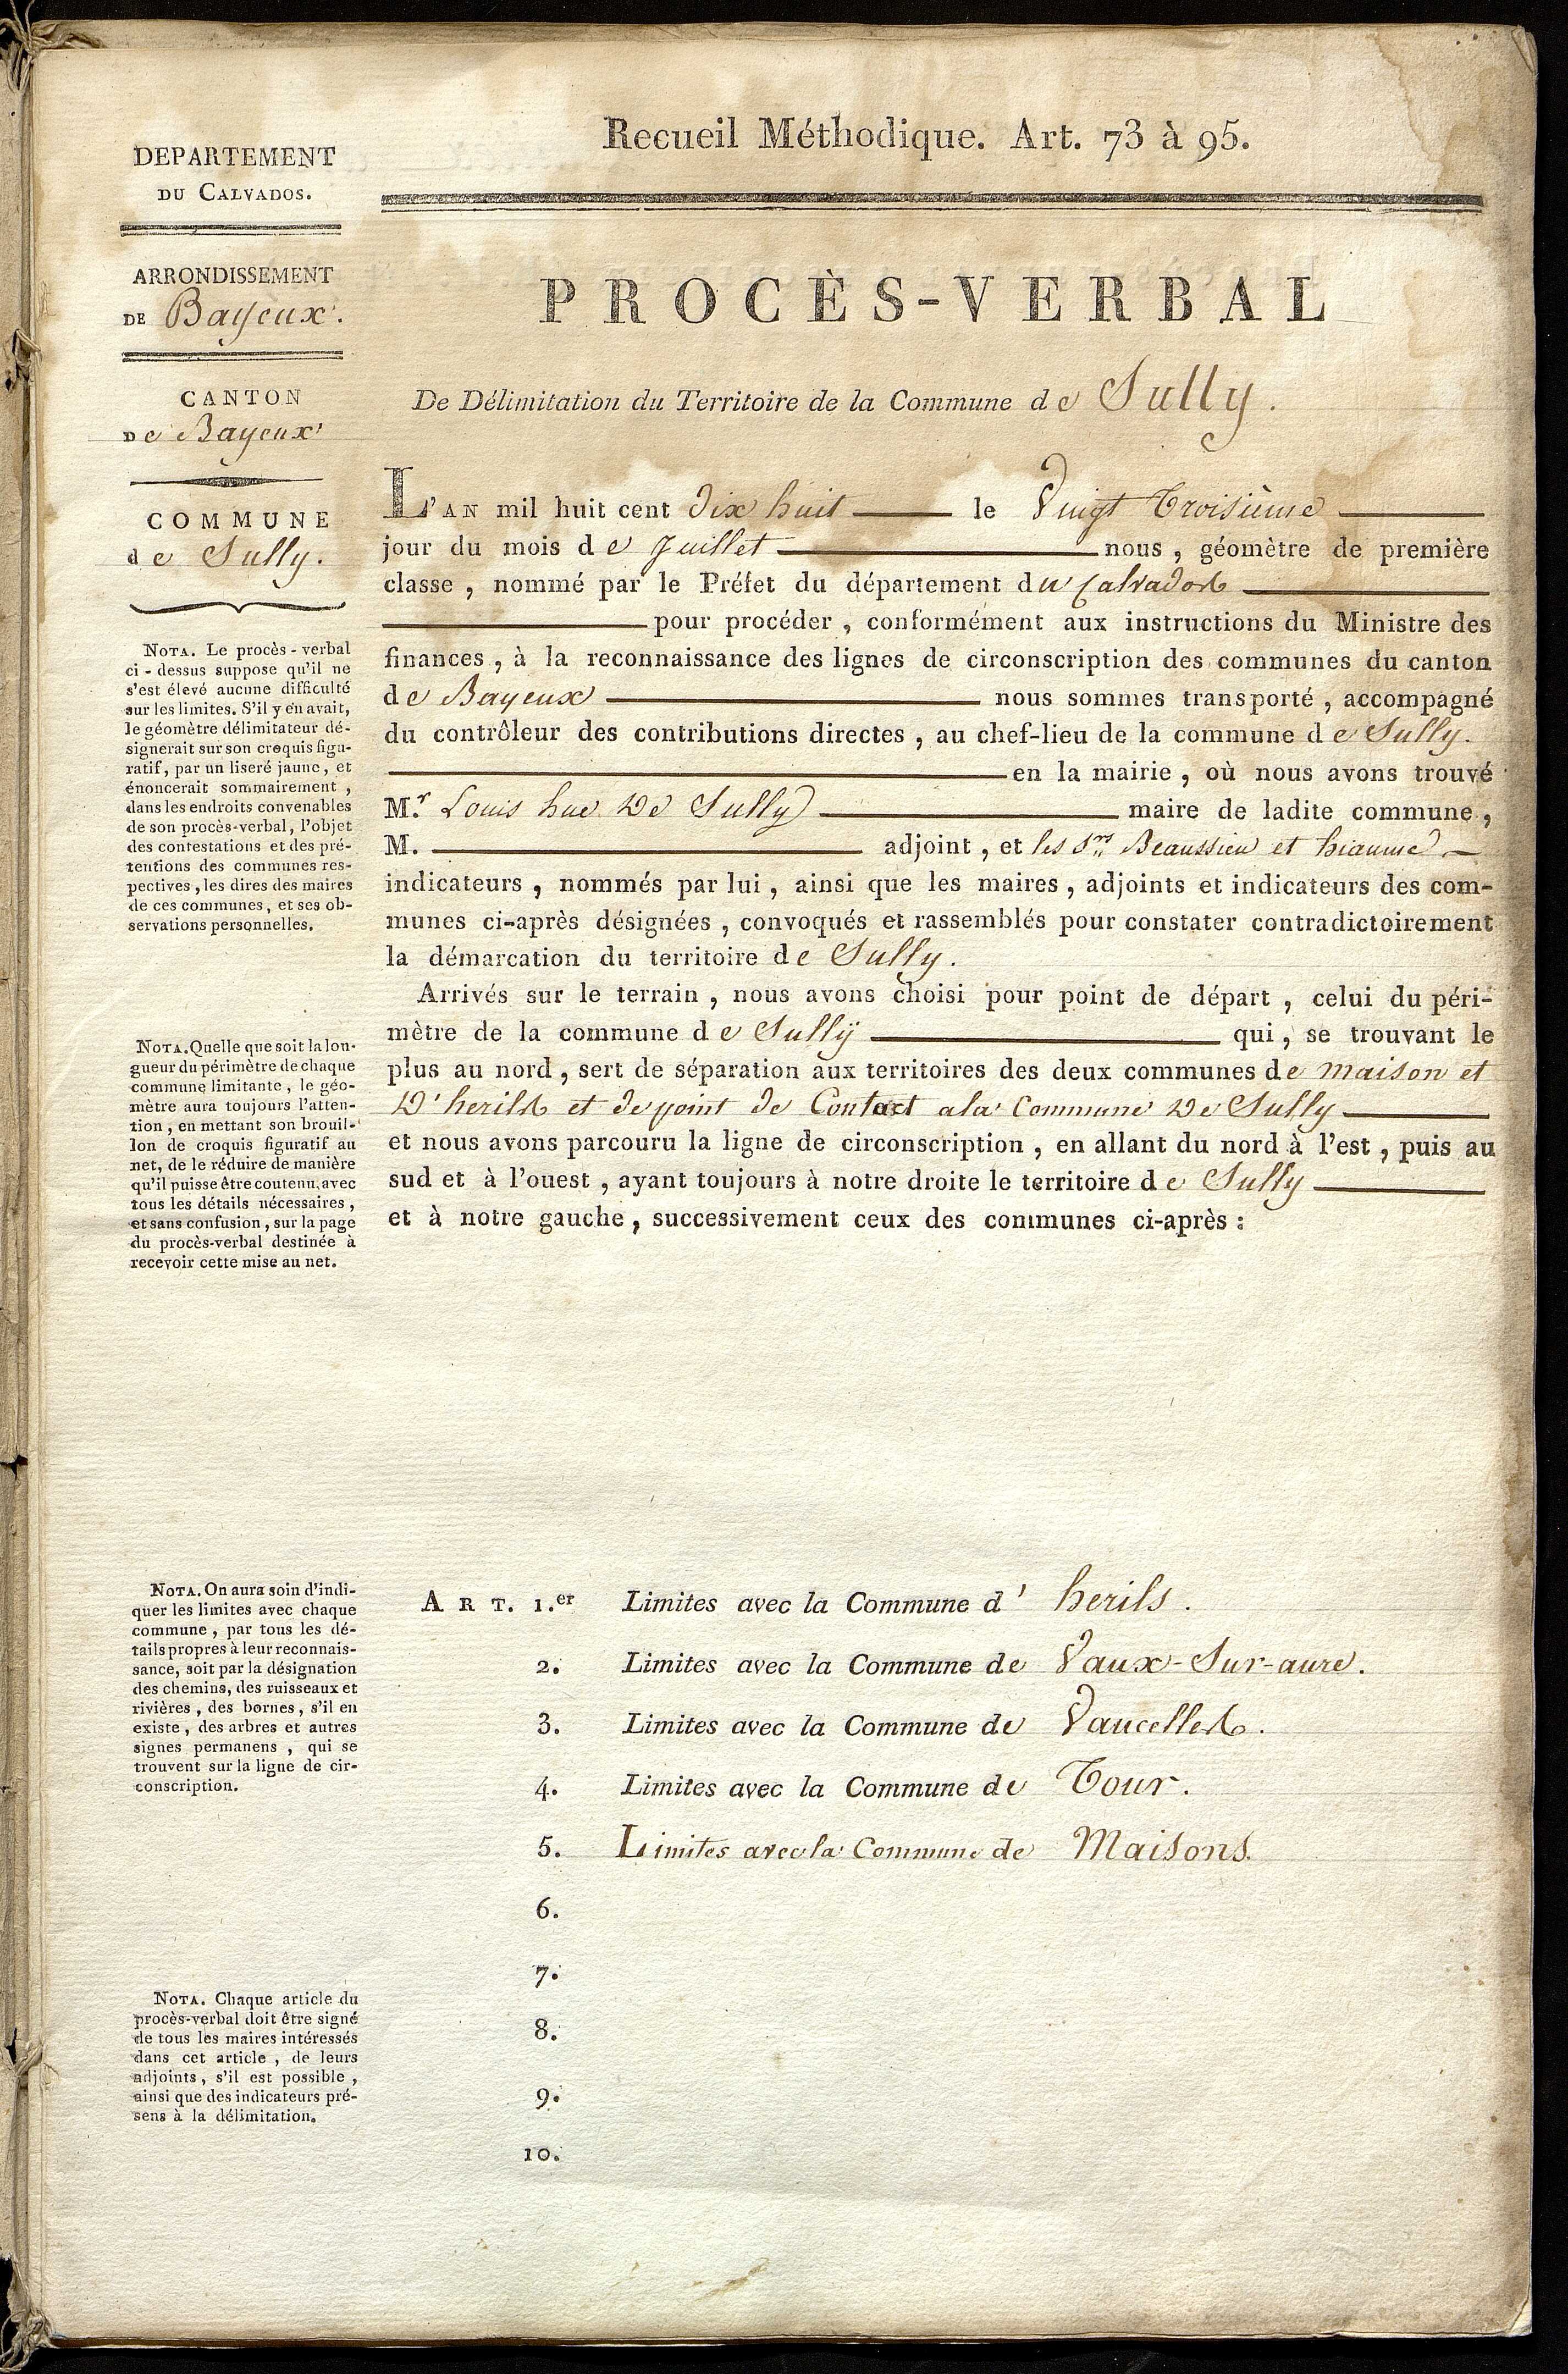 Recueil Méthodique. Art. 73 à 95.
DEPARTEMENT
DU CALVADOS.
ARRONDISSEMENT
DE Bayeux.
CANTON
De Bayeux
COMMUNE
de Sully.
NOTA. Le procès-verbal
ci-dessus suppose qu'il ne
s'est élevé aucune difficulté
sur les limites. S'il y en avait,
le géomètre délimitateur dé-
signerait sur son croquis figu-
ratif, par un liseré jaune, et
énoncerait sommairement,
dans les endroits convenables
de son procès-verbal, l'objet
des contestations et des pré-
tentions des communes res-
pectives, les dires des maires
de ces communes, et ses ob-
servations personnelles.
NOTA. Quelle que soit la lon-
gueur du périmètre de chaque
commune limitante, le géo-
mètre aura toujours l'atten-
tion, en mettant son brouil-
lon de croquis figuratif au
net, de le réduire de manière
qu'il puisse être coutenu, avec
tous les détails nécessaires,
et sans confusion, sur la page
du procès-verbal destinée à
recevoir cette mise au net.
NOTA. On aura soin d'indi-
quer les limites avec chaque
commune, par tous les dé-
tails propres à leur reconnais-
sance, soit par la désignation
des chemins, des ruisseaux et
rivières, des bornes, s'il en
existe, des arbres et autres
signes permanens, qui se
trouvent sur la ligne de cir-
conscription.
NOTA. Chaque article du
procès-verbal doit être signé
de tous les maires intéressés
dans cet article, de leurs
adjoints, s'il est possible,
ainsi que des indicateurs pré-
sens à la délimitation.
PROCÈS-VERBAL
De Délimitation du Territoire de la Commune de Sully.
L'AN mil huit cent dix huit le Vingt Troisième
jour du mois de Juillet nous, géomètre de première
classe, nommé par le Préfet du département du Calvados
pour procéder, conformément aux instructions du Ministre des
finances, à la reconnaissance des lignes de circonscription des communes du canton
de Bayeux nous sommes transporté, accompagné
du contrôleur des contributions directes, au chef-lieu de la commune de Sully.
en la mairie, où nous avons trouvé
M.r Louis hue De Sully maire de ladite commune,
M. adjoint, et les Srs Beaussieu et
indicateurs, nommés par lui, ainsi que les maires, adjoints et indicateurs des com-
munes ci-après désignées, convoqués et rassemblés pour constater contradictoirement
la démarcation du territoire de Sully.
Arrivés sur le terrain, nous avons choisi pour point de départ, celui du péri-
mètre de la commune de Sully qui, se trouvant le
plus au nord, sert de séparation aux territoires des deux communes de maison et
D'herils et de point de Contact a la Commune De Sully
et nous avons parcouru la ligne de circonscription, en allant du nord à l'est, puis au
sud et à l'ouest, ayant toujours à notre droite le territoire de Sully
et à notre gauche, successivement ceux des communes ci-après :
ART. 1.er Limites avec la Commune d' herils.
2. Limites avec la Commune de Vaux-Sur-aure.
3. Limites avec la Commune de Vaucelles.
4. Limites avec la Commune de Tour.
5. Limites avec la Commune de Maisons.
6.
7.
8.
9.
10.